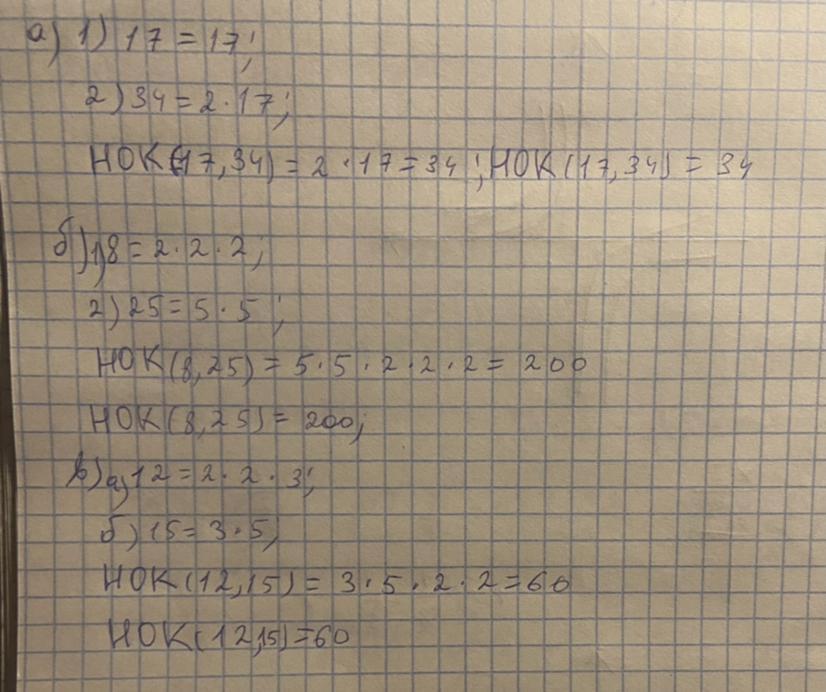 а) 1) 17 = 17;
2) 34 = 2 · 17;
НОК(17, 34) = 2 · 17 = 34 ; НОК (17, 34) = 34
б) 1) 8 = 2 · 2 · 2;
2) 25 = 5 · 5 ;
НОК (8, 25) = 5 · 5 · 2 · 2 · 2 = 200
НОК (8, 25) = 200;
в) а) 12 = 2 · 2 · 3;
б) 15 = 3 · 5;
НОК (12, 15) = 3 · 5 · 2 · 2 = 60
НОК (12, 15) = 60